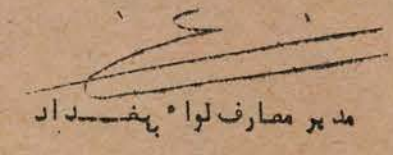 مدير معارف لواء بغـــداد